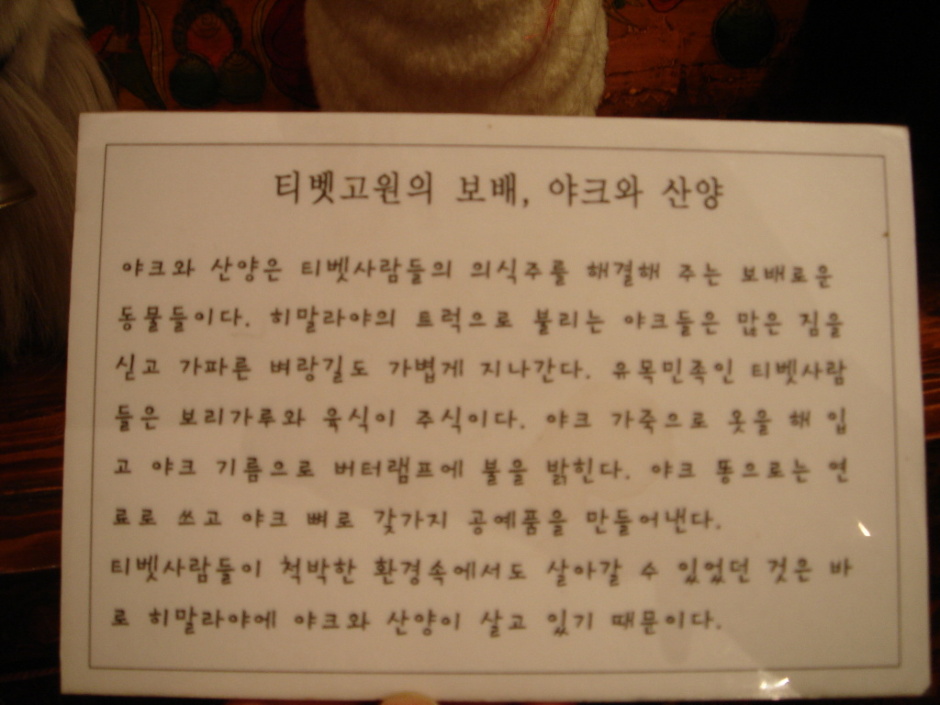 티벳고원의 보배, 야크와 산양
야크와 산양은 티벳사람들의 의식주를 해결해 주는 보배로운
동물들이다. 히말라야의 트럭으로 불리는 야크들은 많은 짐을
싣고 가파른 벼랑길도 가볍게 지나간다. 유목민족인 티벳사람
들은 보리가루와 육식이 주식이다. 야크 가죽으로 옷을 해 입
고 야크 기름으로 버터램프에 불을 밝힌다. 야크 똥으로는 연
료로 쓰고 야크 뼈로 갖가지 공예품을 만들어낸다.
티벳사람들이 척박한 환경속에서도 살아갈 수 있었던 것은 바
로 히말라야에 야크와 산양이 살고 있기 때문이다.